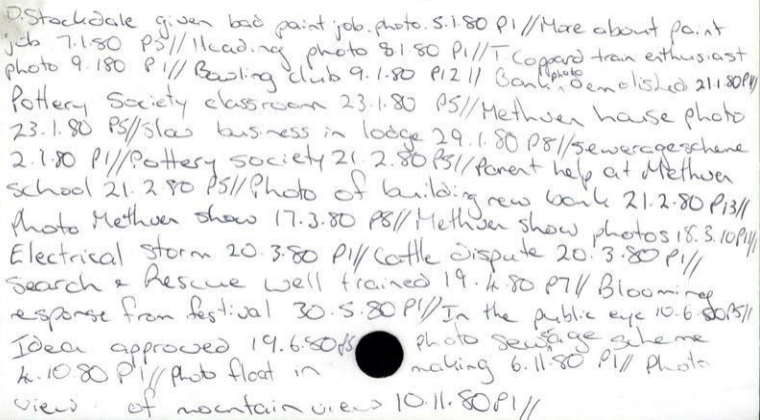 D.Stockdale given bad paint job photo 5.1.80 P1//More about paint
job 7.1.80 P5// Heading photo 8.1.80 P1//T Coppard train enthusiast
photo 9.1.80 P1// Bowling club 9.1.80 P12// Bank photo demolished 21.1.80P1//
Pottery Society classroom 23.1.80 P5//Methven house photo
23.1.80 P5//Slow business in lodge 29.1.80 P8//sewerage scheme
2.1.80 P1//Pottery society 21.2.80 P5//Parent help at Methven
school 21.2.80 P5//Photo of building new bank 21.2.80 P13//
Photo Methven show 17.3.80 P8//Methven show photos 18.3.10P1//
Electrical storm 20.3.80 P1//Cattle dispute 20.3.80 P1//
Search & Rescue well trained 19.4.80 P7// Blooming
response from festival 30.5.80 P1//In the public eye 10.6.80P5//
Idea approved 19.6.80P5 photo sewage scheme
4.10.80 P1// photo float in making 6.11.80 P1// Photo
view of mountain view 10.11.80P1//